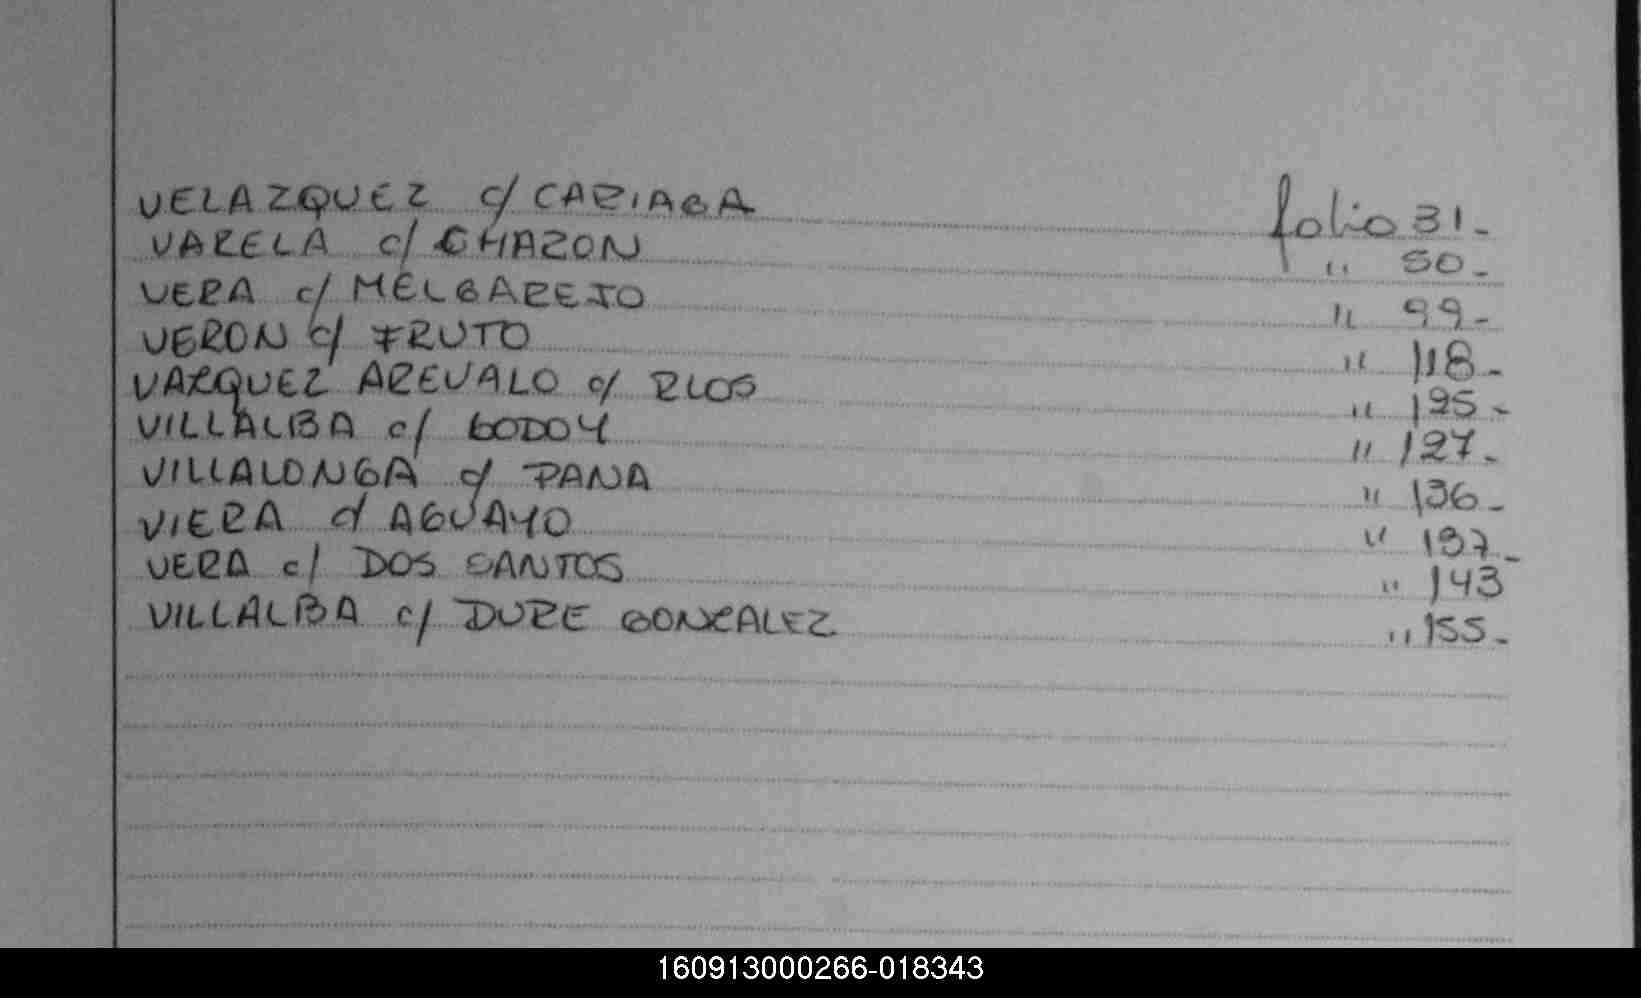 VELAZQUEZ c/ CARIAGA folio 31-
VARELA c/ CHAZON " 50-
VERA c/ MELGAREJO " 99-
VERON c/ FRUTO " 118-
VAZQUEZ AREVALO c/ RIOS " 125-
VILLALBA c/ GODOY " 127-
VILLALONGA c/ PANA " 136-
VIERA c/ AGUAYO " 137-
VERA c/ DOS SANTOS " 143
VILLALBA c/ DURE GONZALEZ " 155-
160913000266-018343